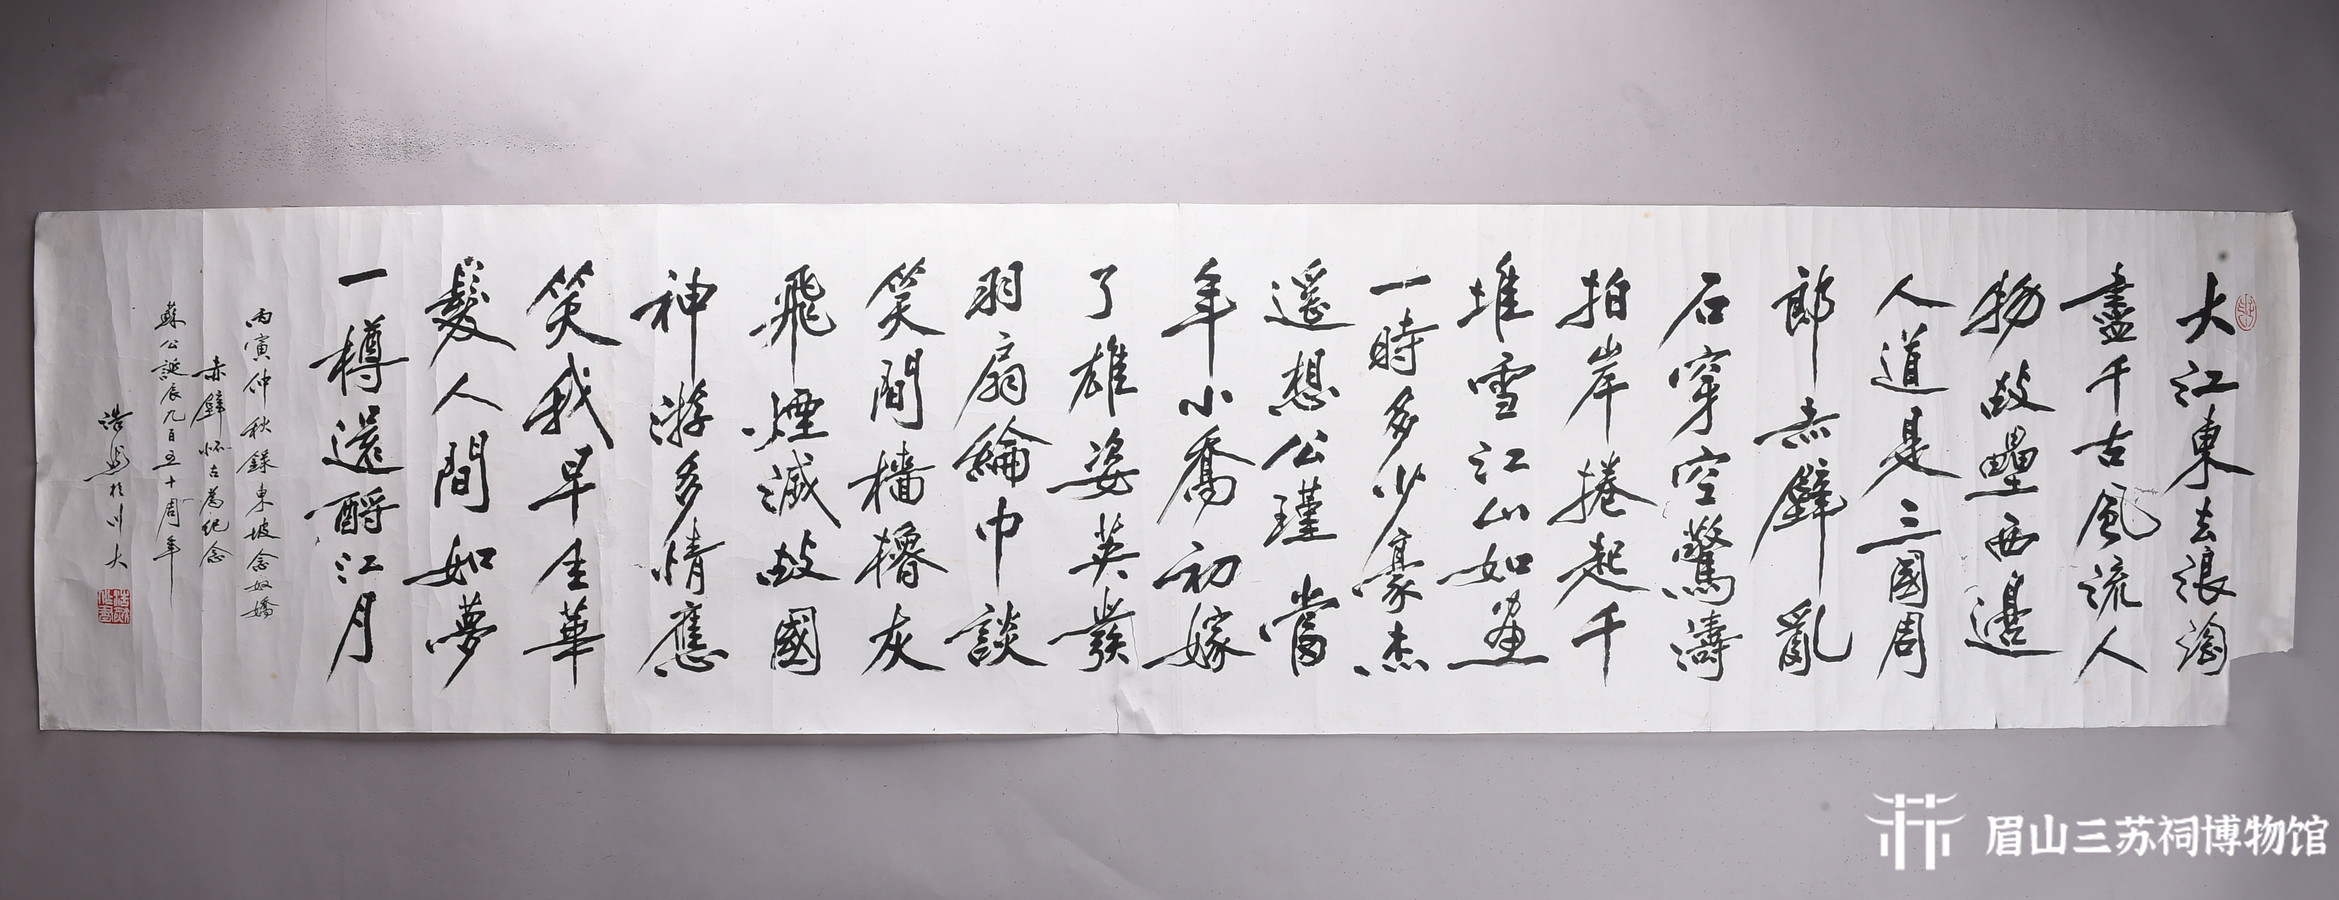 大江東去浪淘
盡千古風流人
物故壘西邊
人道是三國周
郎赤壁亂
石穿空驚濤
拍岸捲起千
堆雪江山如畫
一時多少豪杰
遥想公瑾當
年小喬初嫁
了雄姿英發
羽扇綸巾談
笑間檣櫓灰
飛煙滅故國
神游多情應
笑我早生華
髮人間如夢
一樽還酹江月
丙寅仲秋錄東坡念奴嬌
赤壁怀古為紀念
蘇公誕辰九百五十周年
於川大
眉山三苏祠博物馆